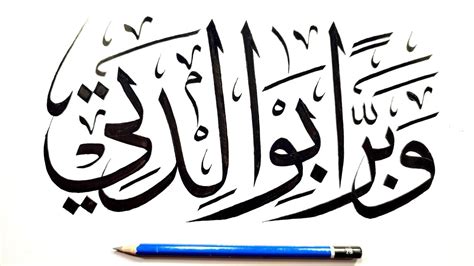 وَبَرًّا بِوَالِدَتِي